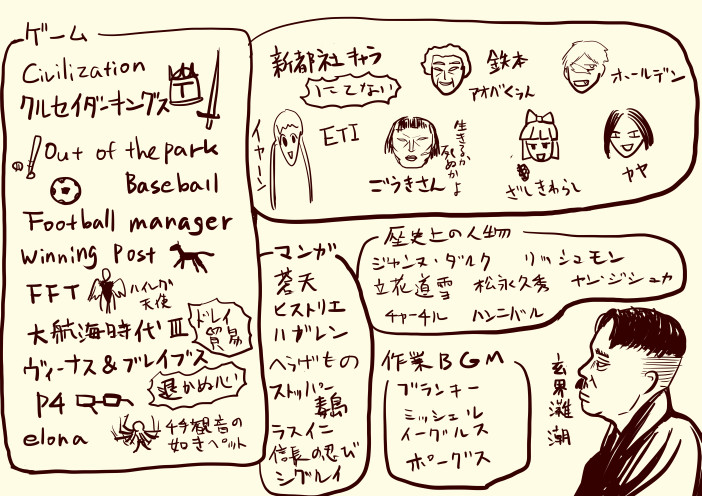 ゲーム
Civilization
クルセイダーキングス
Out of the park
Baseball
Football manager
Winning Post
FFT
ハイレグ
天使
大航海時代Ⅲ
ドレイ
貿易
ヴィーナス&ブレイブス
退かぬ心
P4
elona
千手観音の
如きペット
新都社キャラ
にてない
鉄本
アオバくうん
ホールデン
イャーン
ETI
ごうきさん
生きるか
死ぬかよ
ざしきわらし
ヤヤ
マンガ
蒼天
ヒストリエ
ハガレン
へうげもの
ストッパー
毒島
ラスイニ
信長の忍び
シグルイ
歴史上の人物
ジャンヌ・ダルク
リッシュモン
立花道雪
松永久秀
ヤン・ジシュカ
チャーチル
ハンニバル
作業BGM
ブランキー
ミッシェル
イーグルス
ポーグス
玄界灘
潮